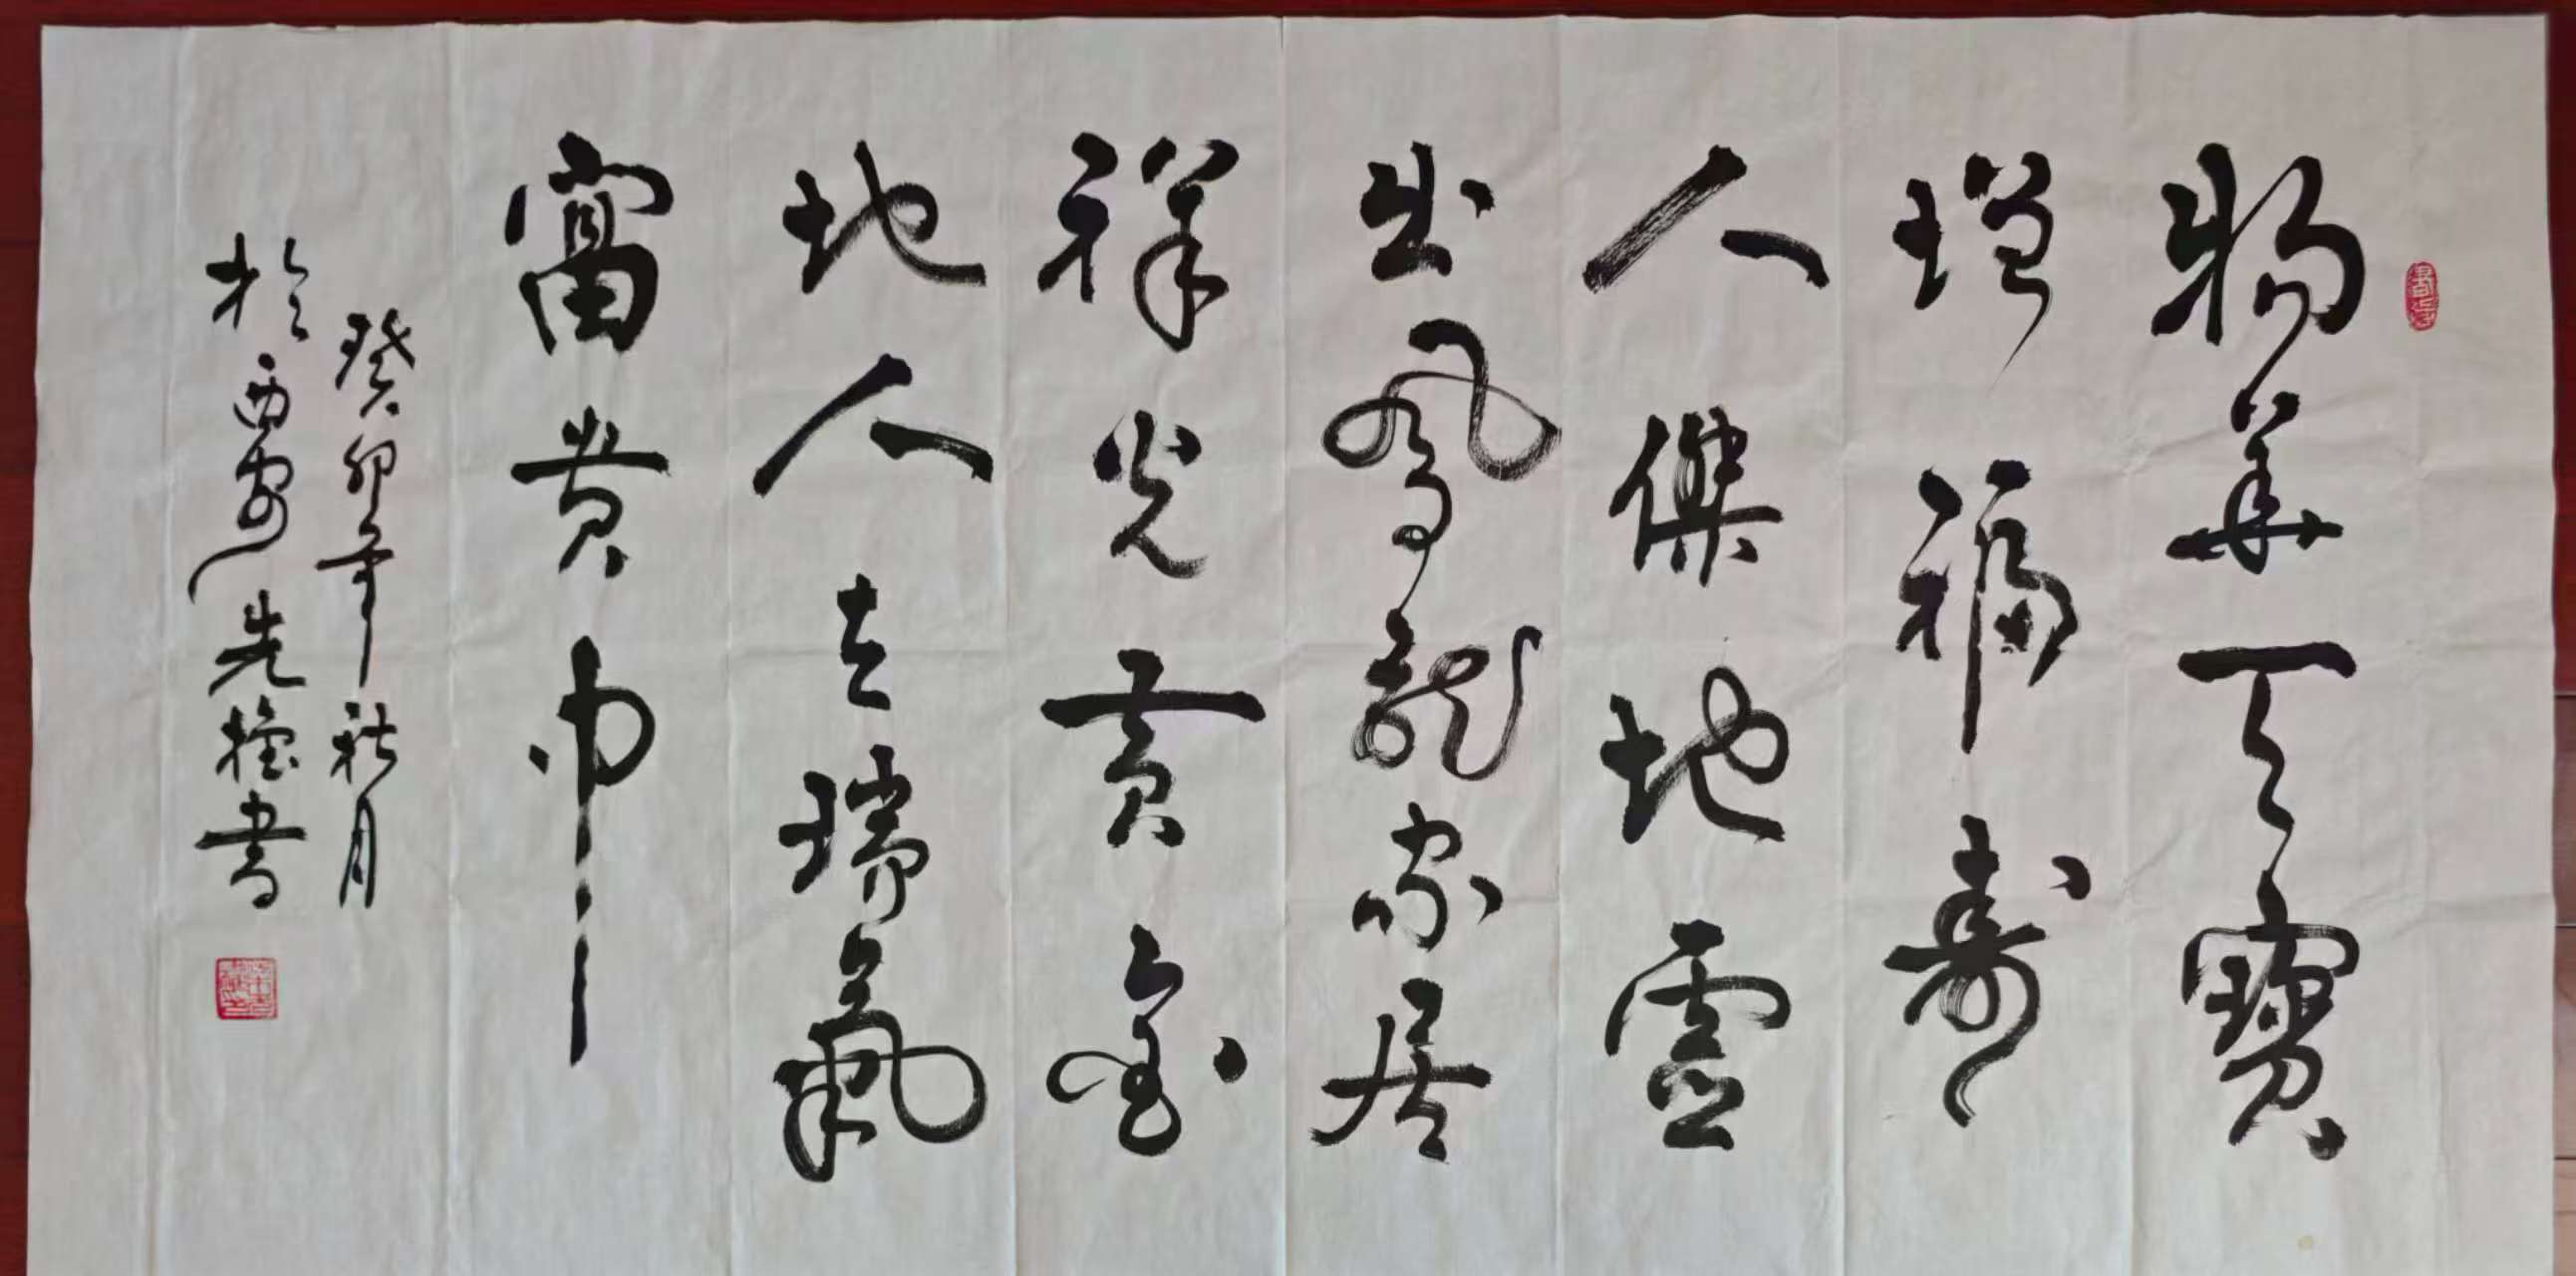 物華天寶
增福壽
人傑地靈
出鳳龍家居
祥光黄金
地人在瑞氣
富貴中
癸卯年秋月
於西安先權書